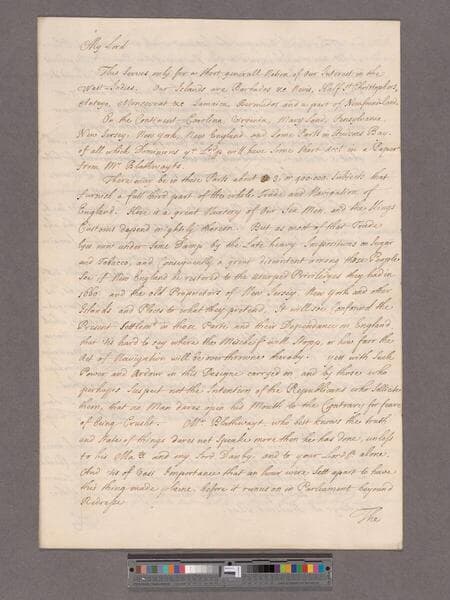 My Lord
This serves only for a short generall Notion of Our Interest in the
West-Indies. Our Islands are Barbados &c Nevis, Half St Christophers,
Antego, Moncerrat &c Jamaica, Burmudos and a part of Newfoundland.
On the Continent Carolina, Virginia, Mary Land, Pensylvania
New Jersey, New York, New England and Some Parts in Hudsons Bay.
of all which Dominions yr Lopp will have Some short Acct in a Paper
from Mr Blathwayt.
There may be in these Parts about 3. or 400.000 Subjects that
furnish a full third part of the whole Trade and Navigation of
England. Here is a great Nursery of Our Sea Men, and the Kings
Customs depend mightily thereon. But as most of that Trade
lyes now under Some Damp by the Late heavy Impositions on Sugar
and Tobacco, and Consequently a great discontent among those People,
Soe if New England be restored to the usurped Priviledges they had in
1660. and the old Proprietors of New Jersey, New York and other
Islands and Places to what they pretend, It will soe Confound the
Present Settlemt in those Parts and their Dependance on England
that 'tis hard to say where the Mischief will Stopp, or how farr the
Act of Navigation will be overthrowne thereby. with Such
Power and Ardour is this Designe carryed on and by those who
perhaps Suspect not the Intention of the Republicans who Sollicite
them, that no Man dares open his Mouth to the Contrary for feare
of being Crusht. Mr Blathwayt who best knows the truth
and State of things dares not Speake more than he has done, unless
to his Ma.tie and my Lord Danby, and to your Lordpp alone.
And 'tis of Vast Importance that an hour were Sett apart to have
this thing made plaine, before it runns on in Parliament beyond
Redresse
The